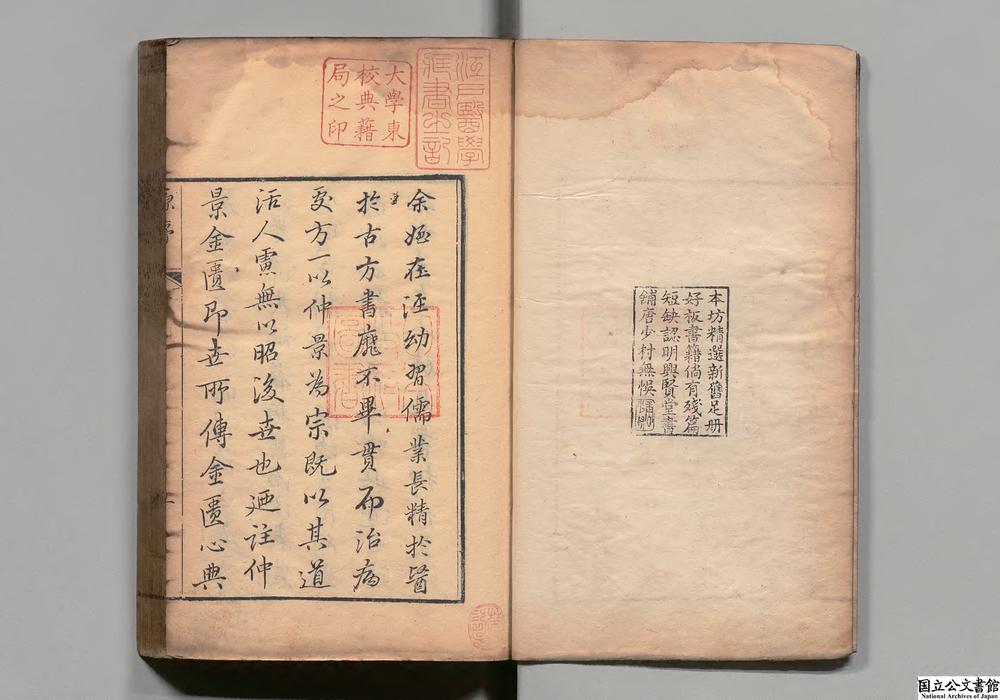 本坊精選新舊足册
好板書籍倘有殘篇
短缺認明興賢堂書
舖唐少村無悞
江戸醫學
藏書之記
大學東
校典藉
局之印
余姪在涇幼習儒業長精於醫
至於古方書靡不畢貫而治病
處方一以仲景為宗既以其道
活人慮無以昭後世也迺註仲
景金匱即世所傳金匱心典
国立公文書館
National Archives of Japan